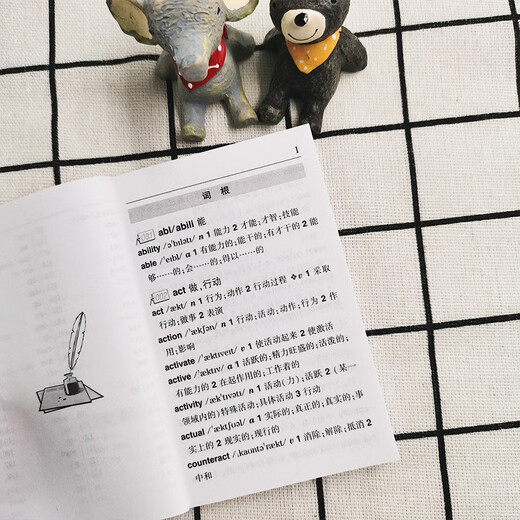 1
词 根
001 abl/abili 能
ability /ə'bɪlətɪ/ n 1 能力 2 才能;才智;技能
able /'eɪbl/ a 1 有能力的;能干的;有才干的 2 能
够……的;会……的;得以……的
002 act 做,行动
act /ækt/ n 1 行为;动作 2 行动过程 ❖v 1 采取
行动;做事 2 表演
action /'ækʃən/ n 1 行动;活动;动作;行为 2 作
用;影响
activate /'æktɪveɪt/ v 1 使活动起来 2 使激活
active /'æktɪv/ a 1 活跃的;精力旺盛的;活泼的;
有能力的 2 在起作用的;工作着的
activity /æk'tɪvətɪ/ n 1 活动(力);活跃 2 (某一
领域内的)特殊活动;具体活动 3 行动
actual /'æktʃʊəl/ a 1 实际的;真正的;真实的;事
实上的 2 现实的;现行的
counteract /ˌkaʊntə'rækt/ v 1 消除,解除;抵消 2
中和